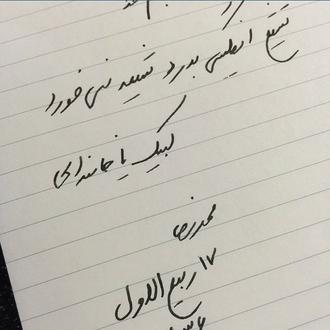 تشیع انگلیسی بدرد شیعه نمی خورد
لبیک یا خامنه‌ای
محمدرضا
۱۷ ربیع الاول